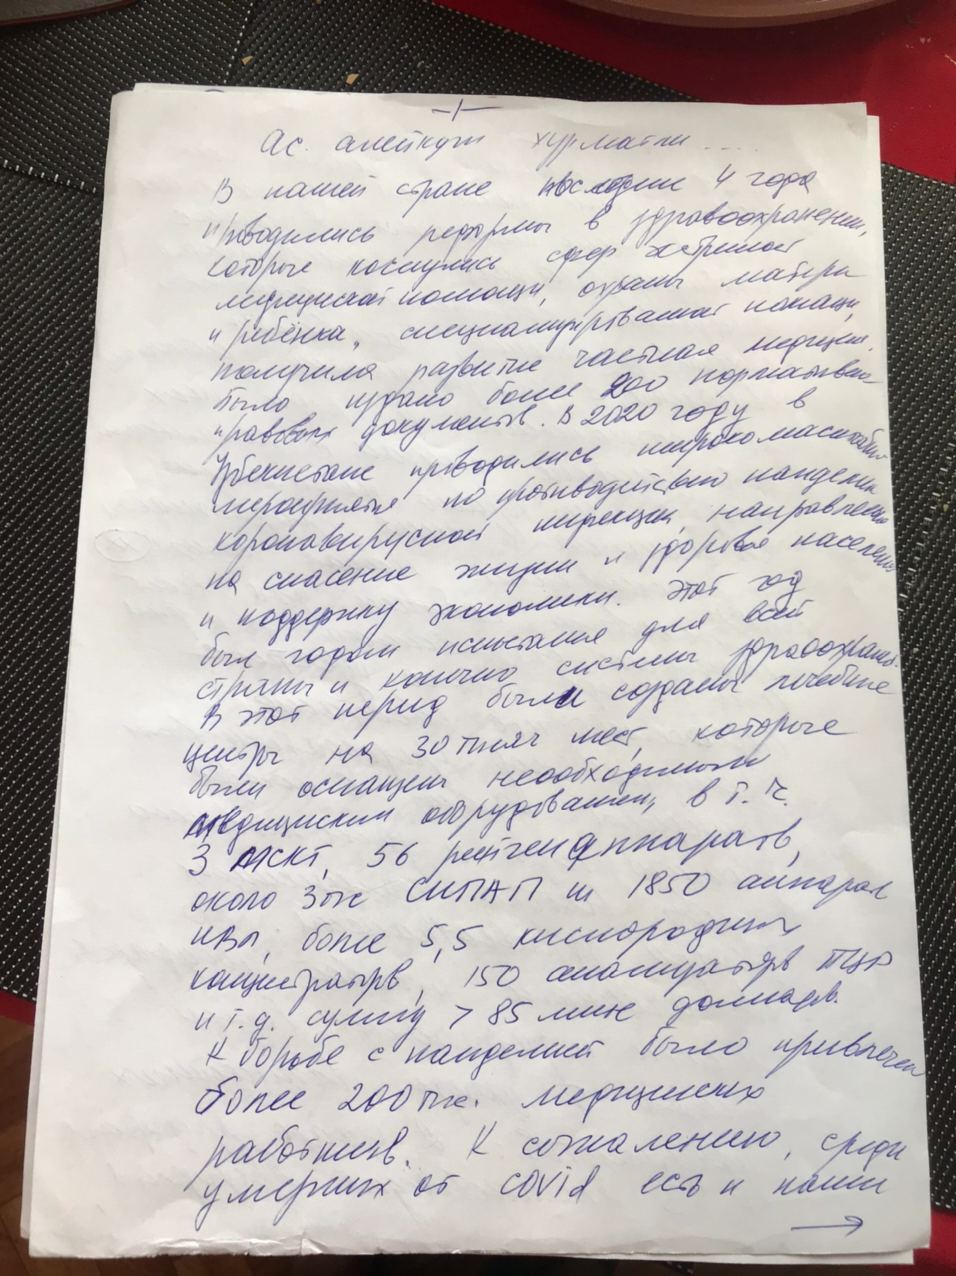 -1-
Ас. алейкум хурматли ....
В нашей стране последние 4 года
проводились реформы в здравоохранении,
которые коснулись сфер экстренной
медицинской помощи, охраны матери
и ребёнка, специализированной помощи,
получила развитие частная медицин.
было издано более 200 нормативно-
правовых документов. В 2020 году в
Узбекистане проводились широкомасштабн
мероприятия по противодействию пандемии
коронавирусной инфекции, направленные
на спасение жизни и здоровья населения
и поддержку экономики. Этот год
был годом испытания для всей
страны и конечно системы здравоохранен.
В этот период были созданы лечебные
центры на 30 тысяч мест, которые
были оснащены необходимым
медицинским оборудованием, в т.ч.
3 МСКТ, 56 рентген аппаратов,
около 3 тыс СИПАП и 1850 аппарат
ИВЛ, более 5,5 кислородных
концентраторов, 150 анализаторов ПЦР
и т.д. сумму > 85 млн долларов.
К борьбе с пандемией было привлечен
более 200 тыс. медицинских
работников. К сожалению, среди
умерших от covid есть и наши
→